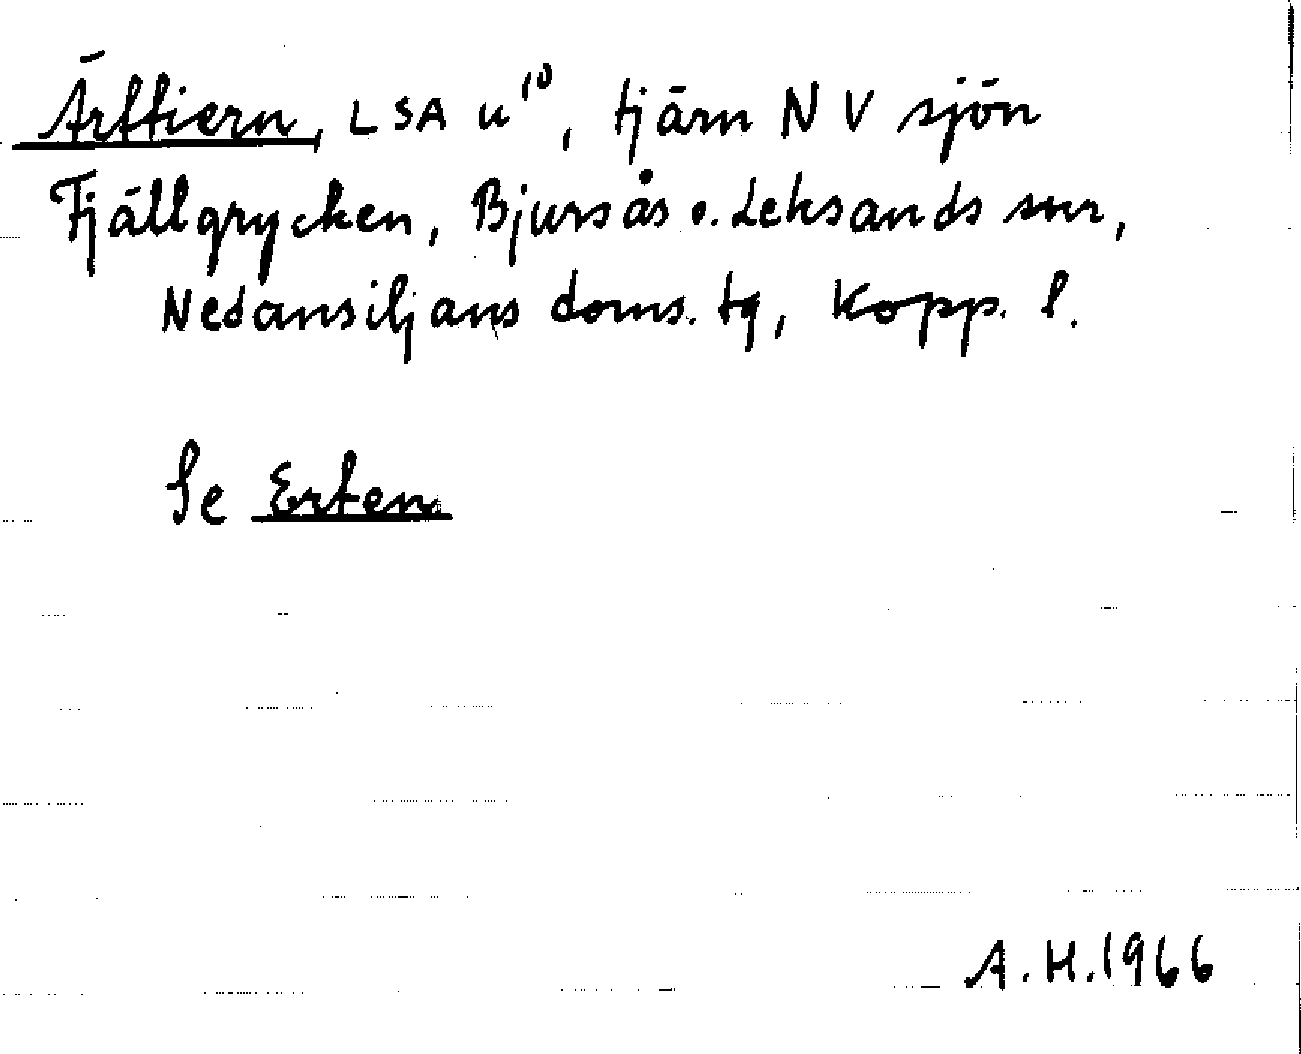 Ärttiern, LSA u¹⁰, tjärn NV sjön
Fjällgrycken, Bjursås o. Leksands snr,
Nedansiljans doms. tg, Kopp. l.
Se Erten
A.H.1966